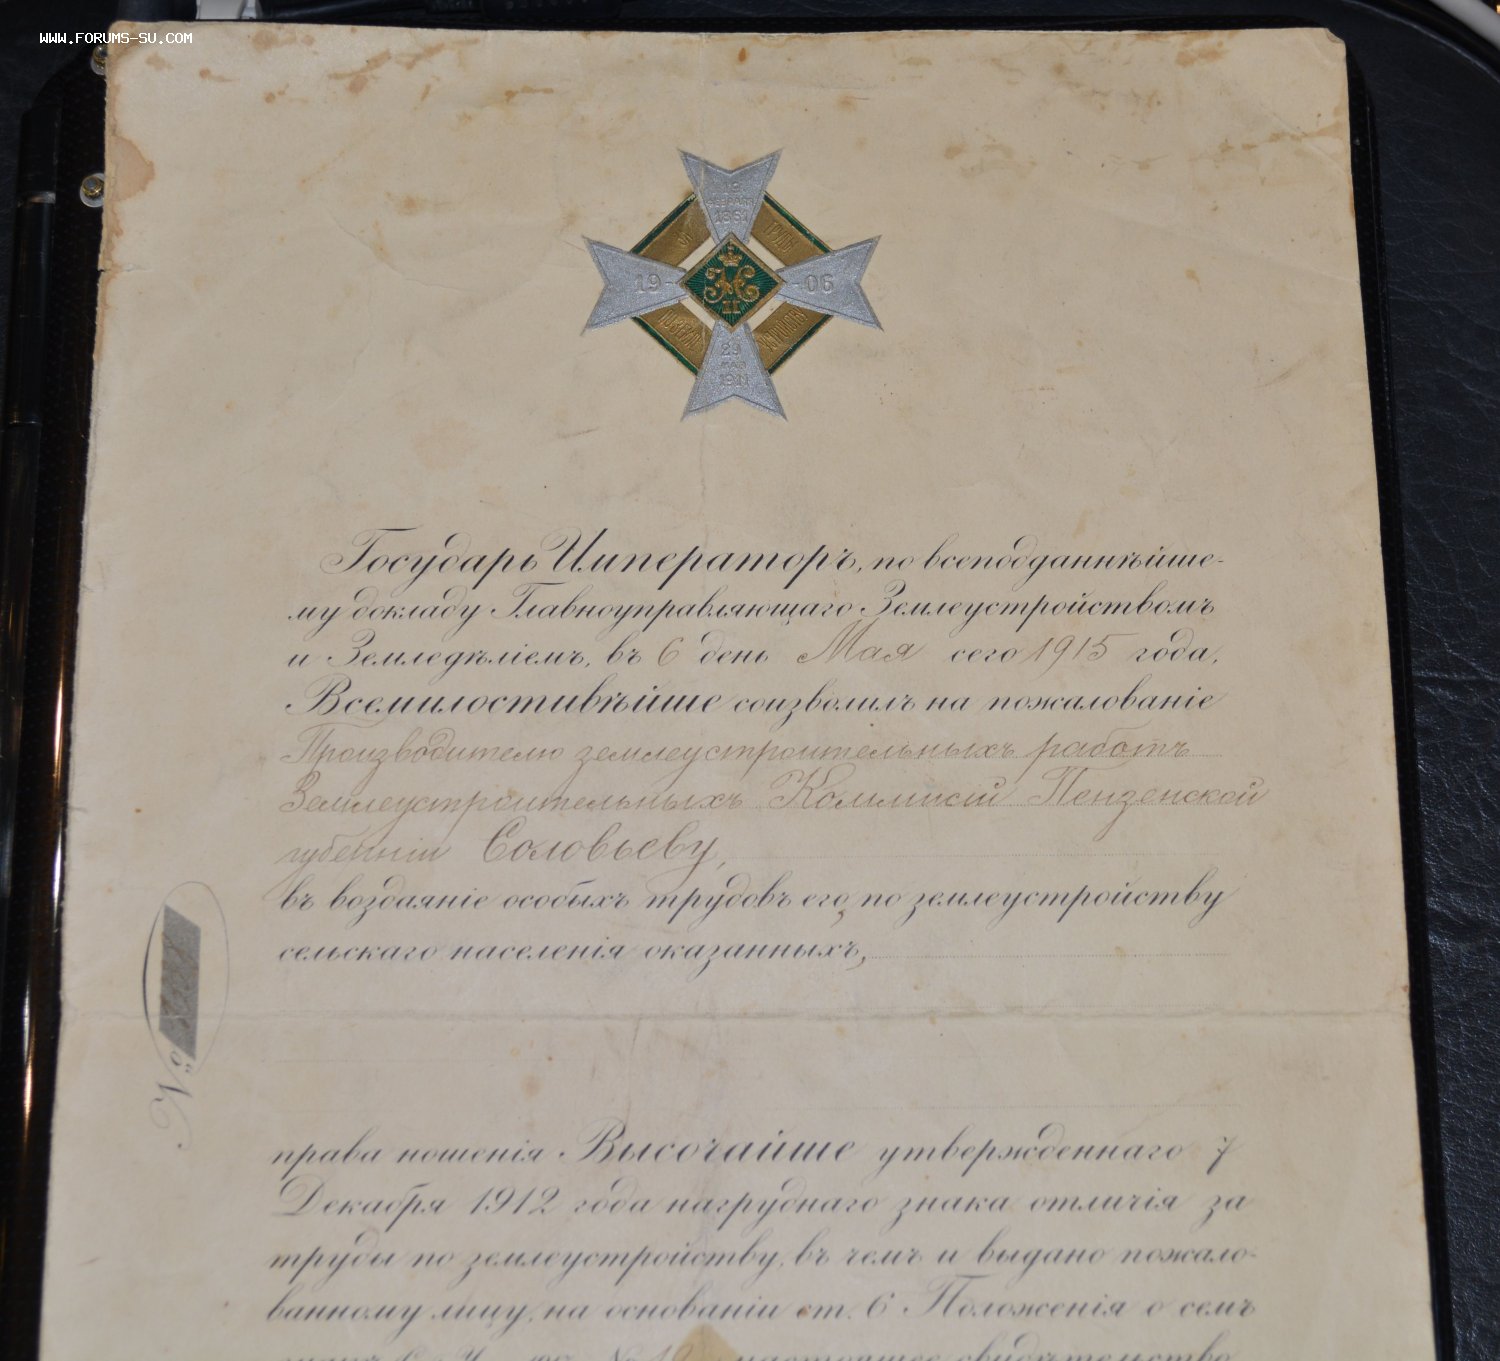 WWW.FORUMS-SU.COM
19
ФЕВРАЛЯ
1861
ЗА
ТРУДЫ
19-
-06
Н II
29
МАЯ
1911
Государь Императоръ, по всеподданнѣйше-
му докладу Главноуправляющаго Землеустройствомъ
и Земледѣліемъ, въ 6 день Мая сего 1915 года,
Всемилостивѣйше соизволилъ на пожалованіе
Производителю землеустроительныхъ работъ
Землеустроительныхъ Коммисій Пензенской
губерніи Соловьеву,
въ воздаяніе особыхъ трудовъ его, по землеустройству
сельскаго населенія оказанныхъ,
№
права ношенія Высочайше утвержденнаго 7
Декабря 1912 года нагруднаго знака отличія за
труды по землеустройству, въ чемъ и выдано пожало-
ванному лицу, на основаніи ст. 6 Положенія о семъ
настоящее свидѣтельство